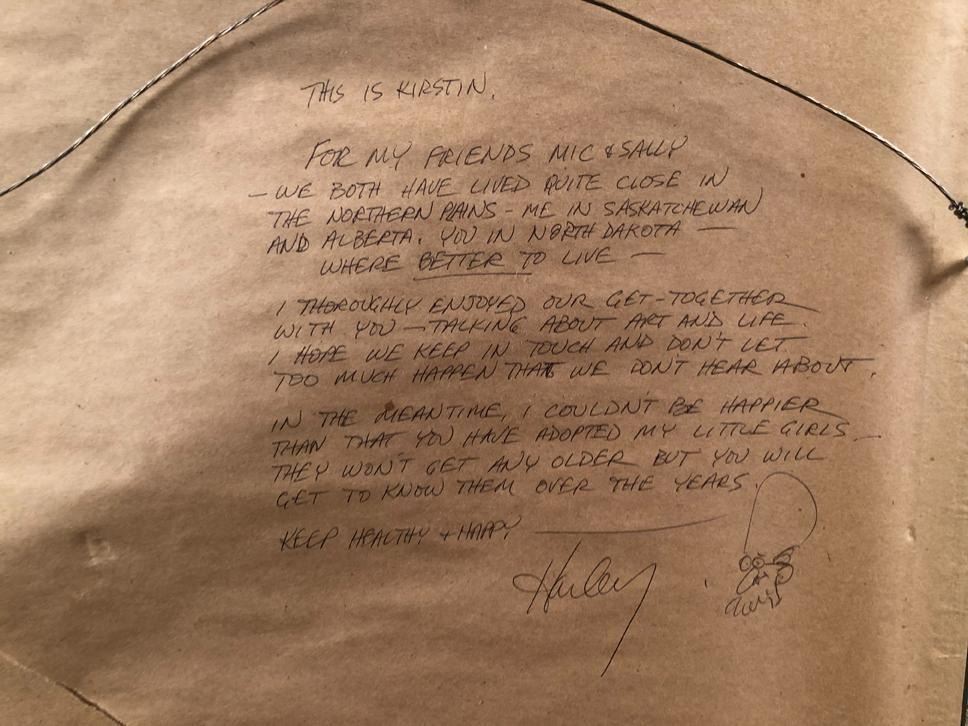 THIS IS KIRSTIN.
FOR MY FRIENDS MIC & SALLY
– WE BOTH HAVE LIVED QUITE CLOSE IN
THE NORTHERN PLAINS – ME IN SASKATCHEWAN
AND ALBERTA. YOU IN NORTH DAKOTA —
WHERE BETTER TO LIVE —
I THOROUGHLY ENJOYED OUR GET-TOGETHER
WITH YOU — TALKING ABOUT ART AND LIFE.
I HOPE WE KEEP IN TOUCH AND DON'T LET
TOO MUCH HAPPEN THAT WE DON'T HEAR ABOUT.
IN THE MEANTIME, I COULDN'T BE HAPPIER
THAN THAT YOU HAVE ADOPTED MY LITTLE GIRLS –
THEY WON'T GET ANY OLDER BUT YOU WILL
GET TO KNOW THEM OVER THE YEARS.
KEEP HEALTHY + HAPPY —
Harley